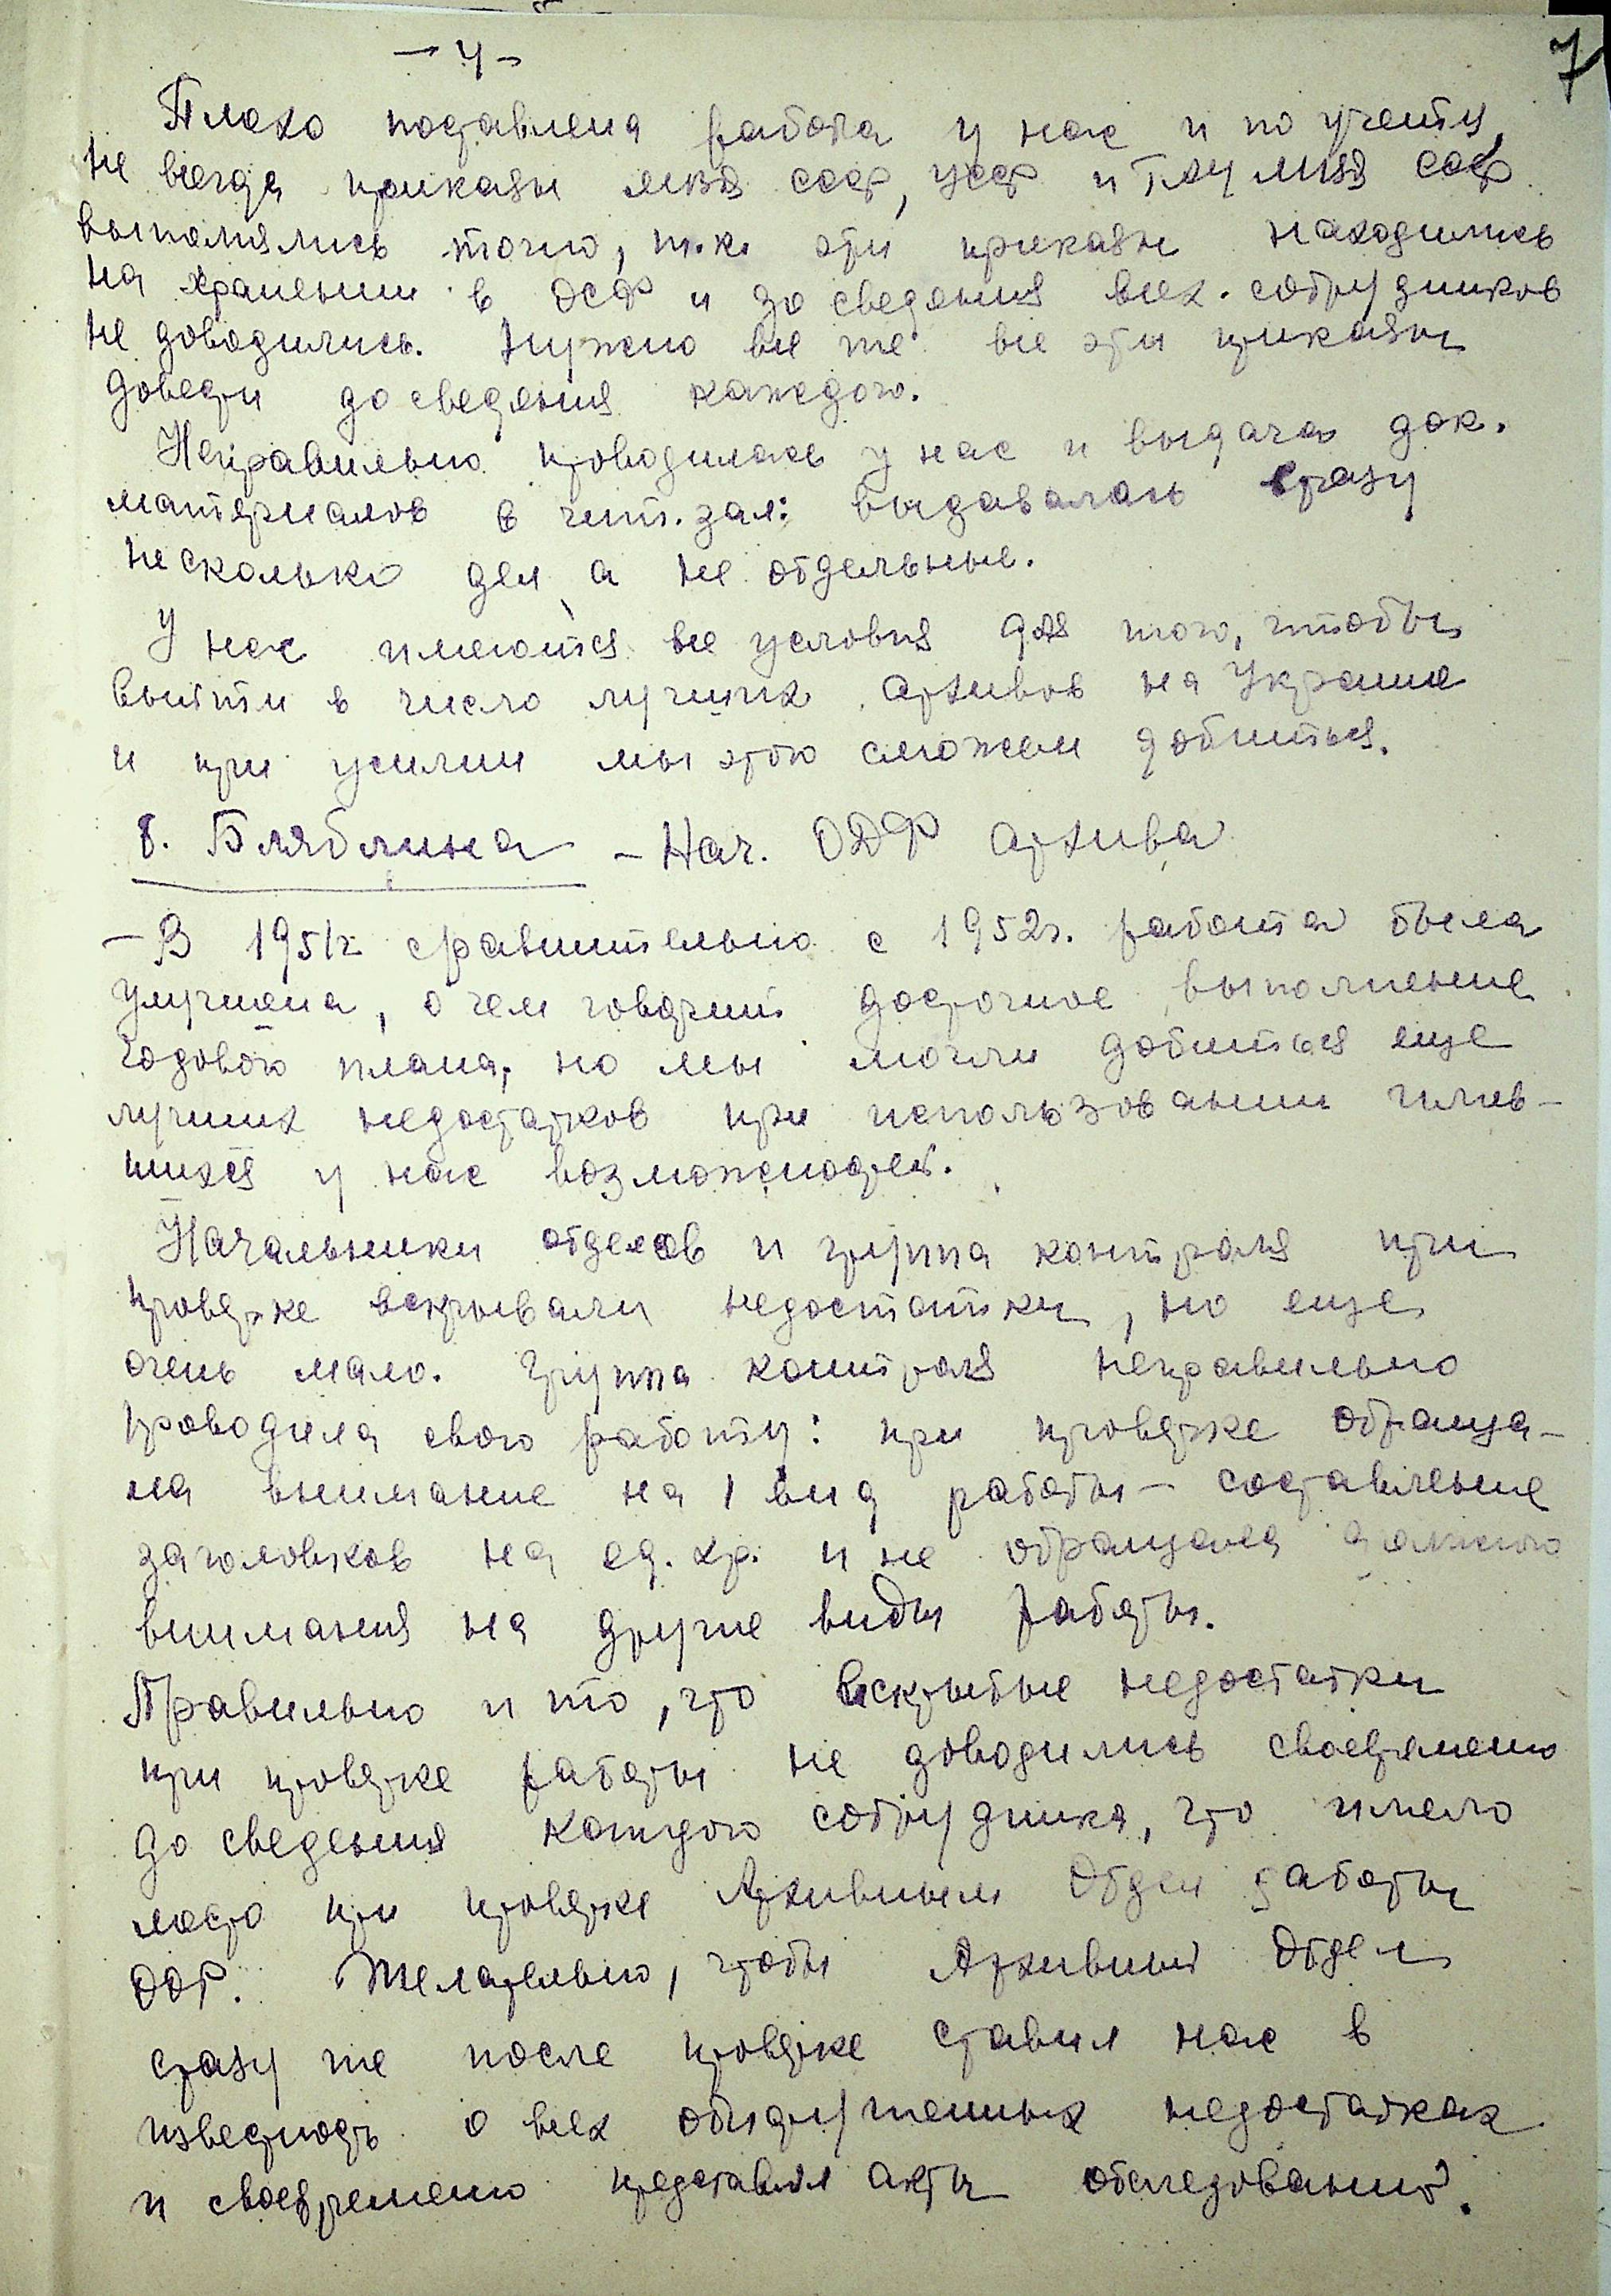 - 4 -
7
Плохо поставлена работа у нас и по учету,
не всегда приказы МВД СССР, УССР и ГАУ МВД СССР
выполнялись точно, т.к. эти приказы находились
на хранении в ОСФ и до сведения всех сотрудников
не доводились. Нужно все же все эти приказы
довести до сведения каждого.
Неправильно проводилась у нас и выдача док.
материалов в чит. зал: выдавалось сразу
несколько дел, а не отдельные.
У нас имеются все условия для того, чтобы
выйти в число лучших архивов на Украине
и при усилии мы этого сможем добиться.
8. Бляблина - Нач. ОДФ архива
- В 1951г сравнительно с 1952г. работа была
улучшена, о чем говорит досрочное выполнение
годового плана, но мы могли добиться еще
лучших недостатков при использовании имев-
шихся у нас возможностей.
Начальники отделов и группа контроля при
проверке вскрывали недостатки, но еще
очень мало. Группа контроля неправильно
проводила свою работу: при проверке обраща-
ла внимание на 1 вид работы - составление
заголовков на ед. хр. и не обращала должного
внимания на другие виды работы.
Правильно и то, что вскрытые недостатки
при проверке работы не доводились своевременно
до сведения каждого сотрудника, что имело
место при проверке Архивным Отделом работы
ОДФ. Желательно, чтобы Архивный Отдел
сразу же после проверке ставил нас в
известность о всех обнаруженных недостатках
и своевременно представлял акты обследований.